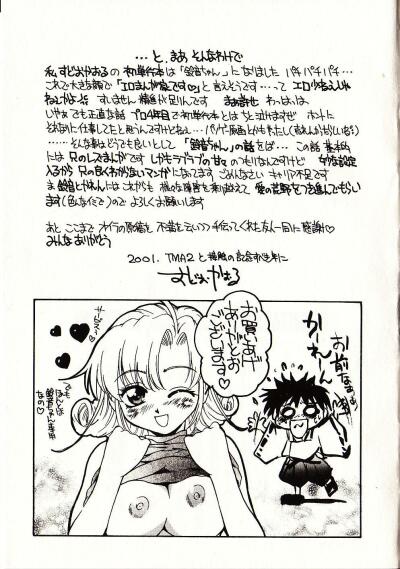 …と、まあ そんなわけで
私 すどおかおるの 初単行本は「鈴音ちゃん」になりました パチパチパチ…
これで大きな顔で「エロまんが家です♡」と言えそうです…って エロ少ねえじゃ
ねーかよ すいません 精進が足りんです まあ許せ わっはっは
じゃあ でも正直な話 プロ4年目で初単行本とは
それなりに仕事してたと思うんですけどねえ…
……そんな事はどうでも良いとして「鈴音ちゃん」の話をば… この話 基本的
には 兄のしてまんがです しかもラブラブの甘々のつもりなんですけど 妙な設定
入るから 兄の良くわかんないマンガになってます ごめんなさい キャリア不足です
ま 鈴音とかれんには これからも 様々な障害を乗り越えて 愛の荒野をつき進んでもらい
ます(色んなイミで)ので よろしくお願いします
あと、ここまで オイラの原稿を 不満を言いつつ手伝ってくれた友人一同に感謝♡
みんなありがとう
2001. TMA2 と
すどおかおる
お買いあげ
ありがとお
ございます♡
かーれーん
お前なあ
サービス♡
でも
ほんとは
鈴音ちゃん専用
なの♡